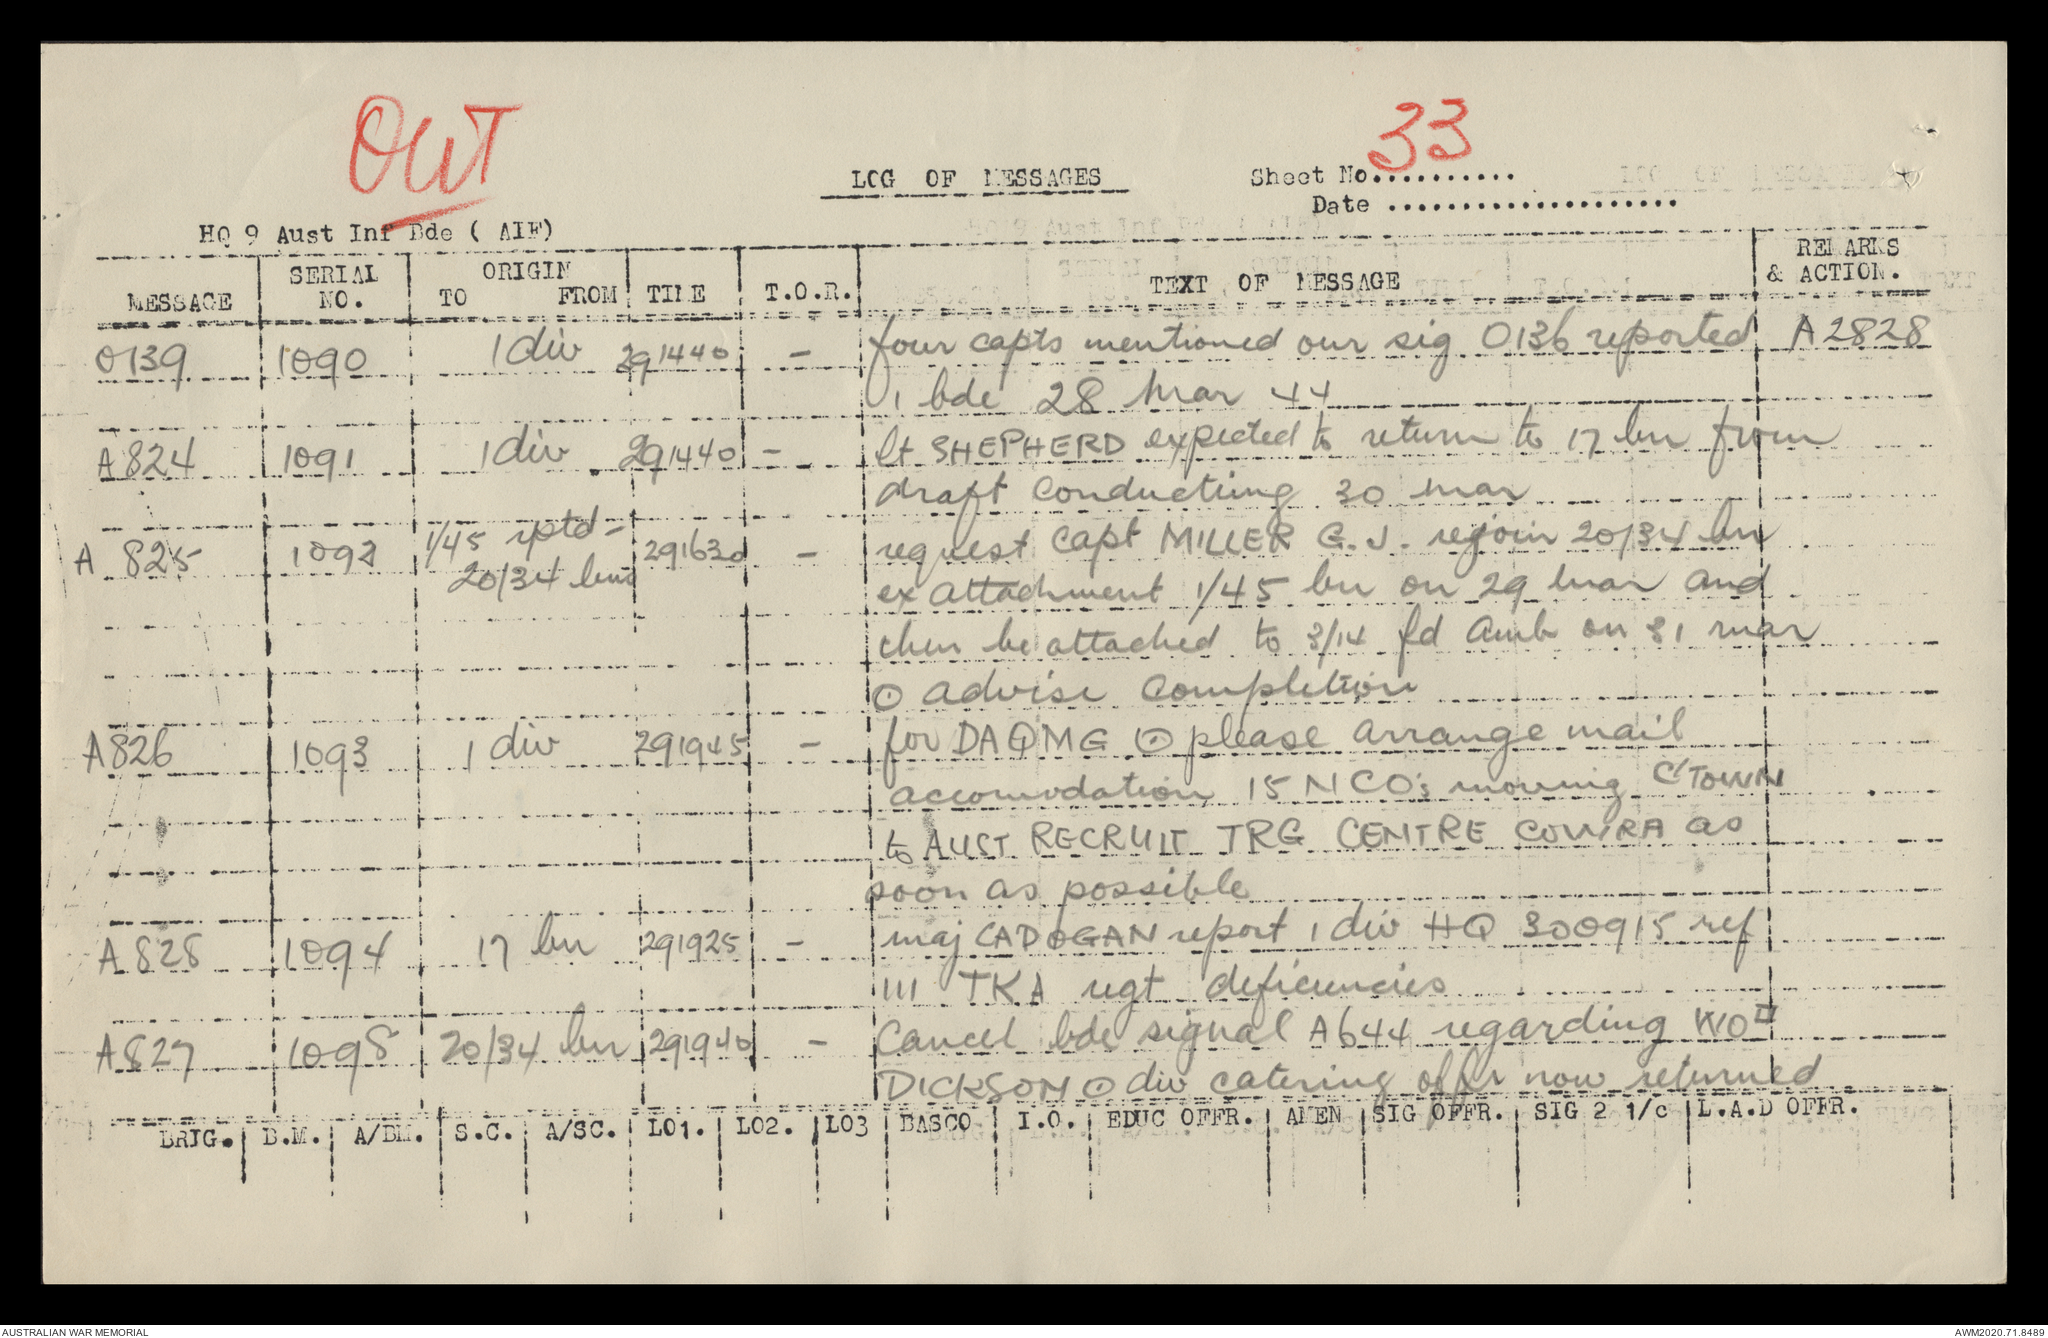 OUT
33
LOG OF MESSAGES
Sheet No...........
Date ....................
HQ 9 Aust Inf Bde ( AIF)
MESSAGE SERIAL NO. ORIGIN TO FROM TIME T.O.R. TEXT OF MESSAGE REMARKS & ACTION.
0139 1090 1 div 291440 - four capts mentioned our sig 0136 reported A2828
1 bde 28 mar 44
A824 1091 1 div 291440 - lt SHEPHERD expected to return to 17 bn from
draft conducting 30 mar
A 825 1092 1/45 rptd - 291630 - request capt MILLER G.J. rejoin 20/34 bn
20/34 bns ex attachment 1/45 bn on 29 mar and
then be attached to 3/14 fd amb on 31 mar
⊙ advise completion
A826 1093 1 div 291945 - for DAQMG ⊙ please arrange mail
accomodation 15 NCO's moving C'TOWN
to AUST RECRUIT TRG CENTRE COWRA as
soon as possible
A828 1094 17 bn 291925 - maj CADOGAN report 1 div HQ 300915 ref
111 TKA regt deficiencies
A827 1095 20/34 bn 291940 - Cancel bde signal A644 regarding WO II
DICKSON ⊙ div catering offr now returned
BRIG. B.M. A/BM. S.C. A/SC. LO1. LO2. LO3 BASCO I.O. EDUC OFFR. AMEN SIG OFFR. SIG 2 1/c L.A.D OFFR.
AUSTRALIAN WAR MEMORIAL
AWM2020.71.8489